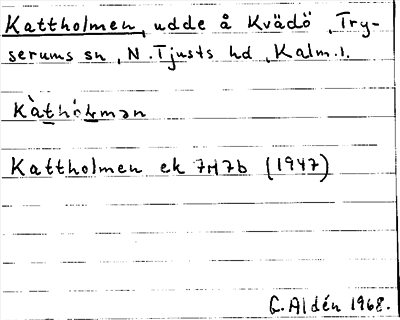 Kattholmen, udde å Kvädö, Try-
serums sn, N. Tjusts hd, Kalm. l.
Kattholmen ek 7H7b (1947)
G. Aldén 1968.